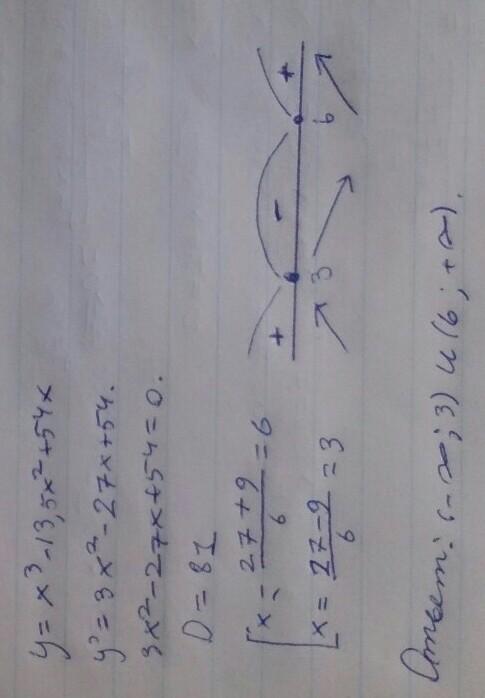 y = x³ - 13,5x² + 54x
y' = 3x² - 27x + 54.
3x² - 27x + 54 = 0.
D = 81
x = (27 + 9)/6 = 6
x = (27 - 9)/6 = 3
+ - +
3 6
Ответ: (-∞; 3) и (6; +∞).